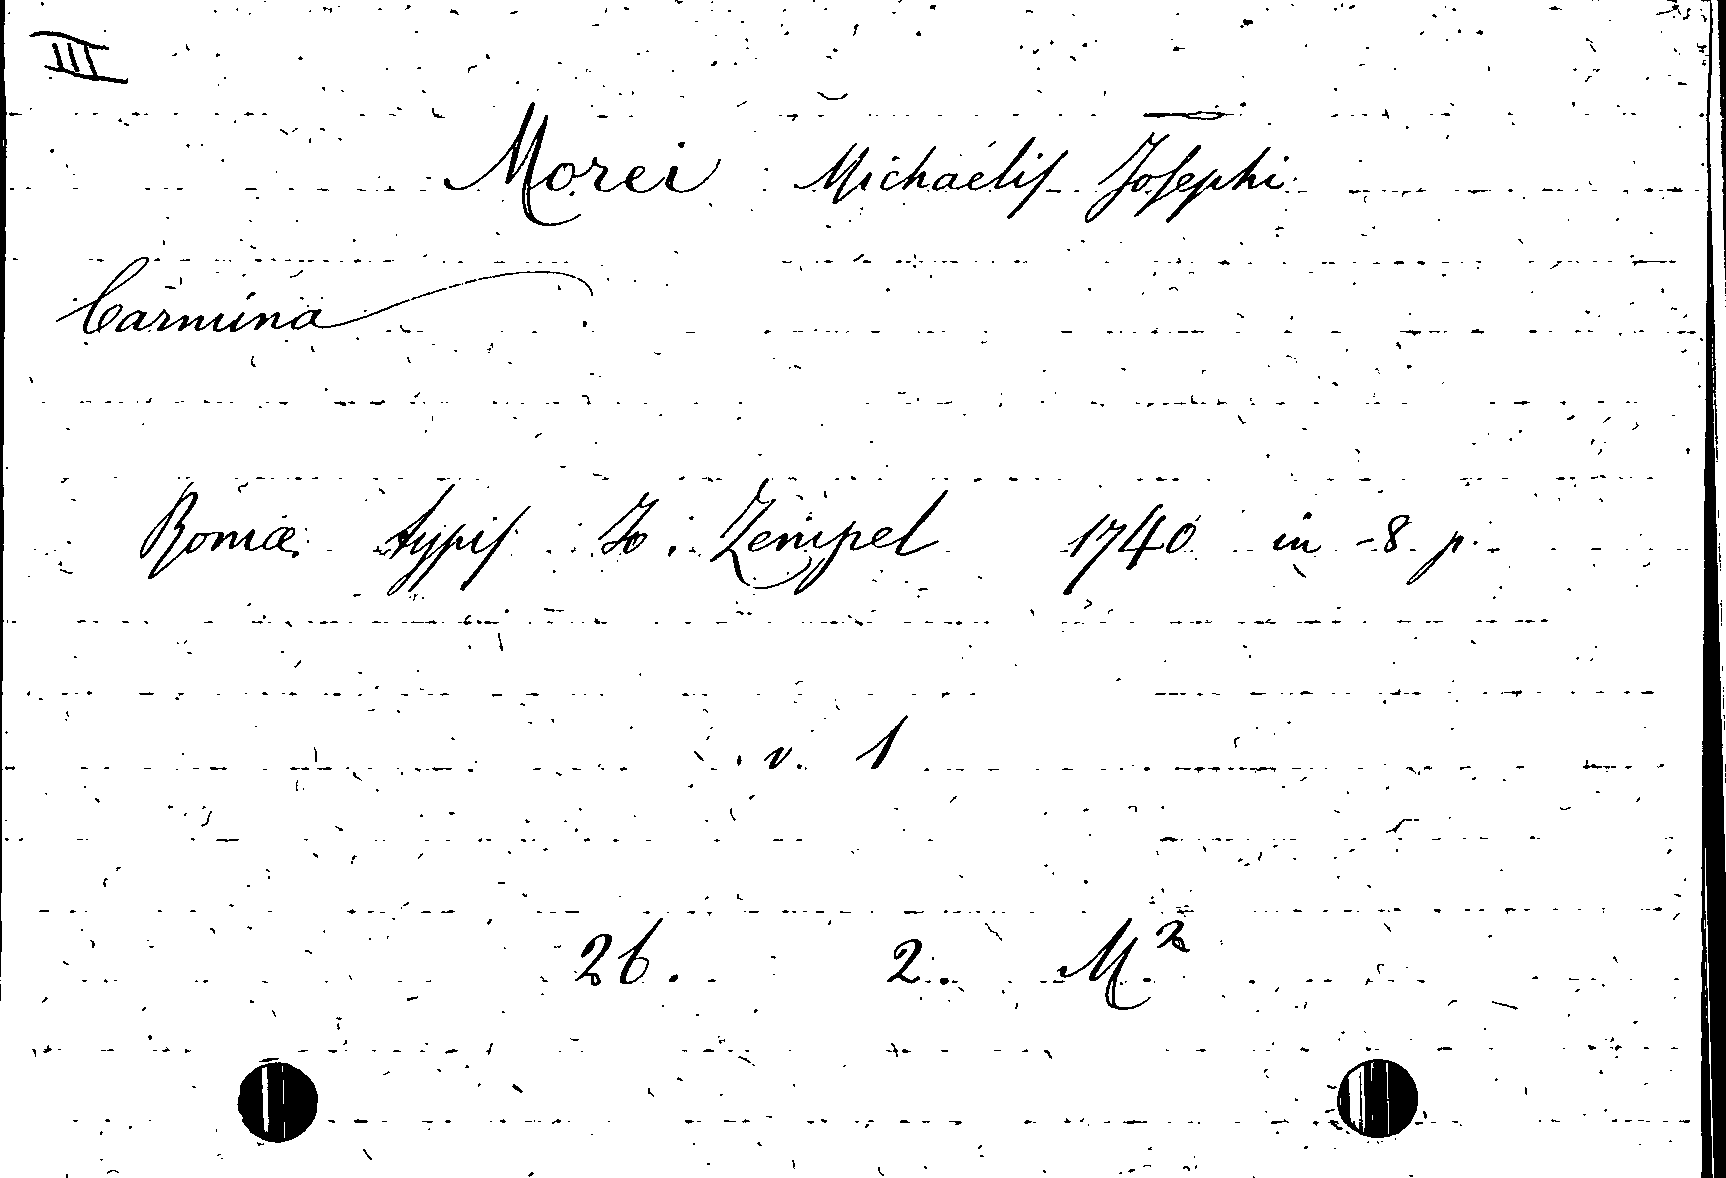 III
Morei Michaelis Josephi
Carmina
Romæ typis Jo. Zempel 1740 in -8 p.
v. 1
26. 2. M²